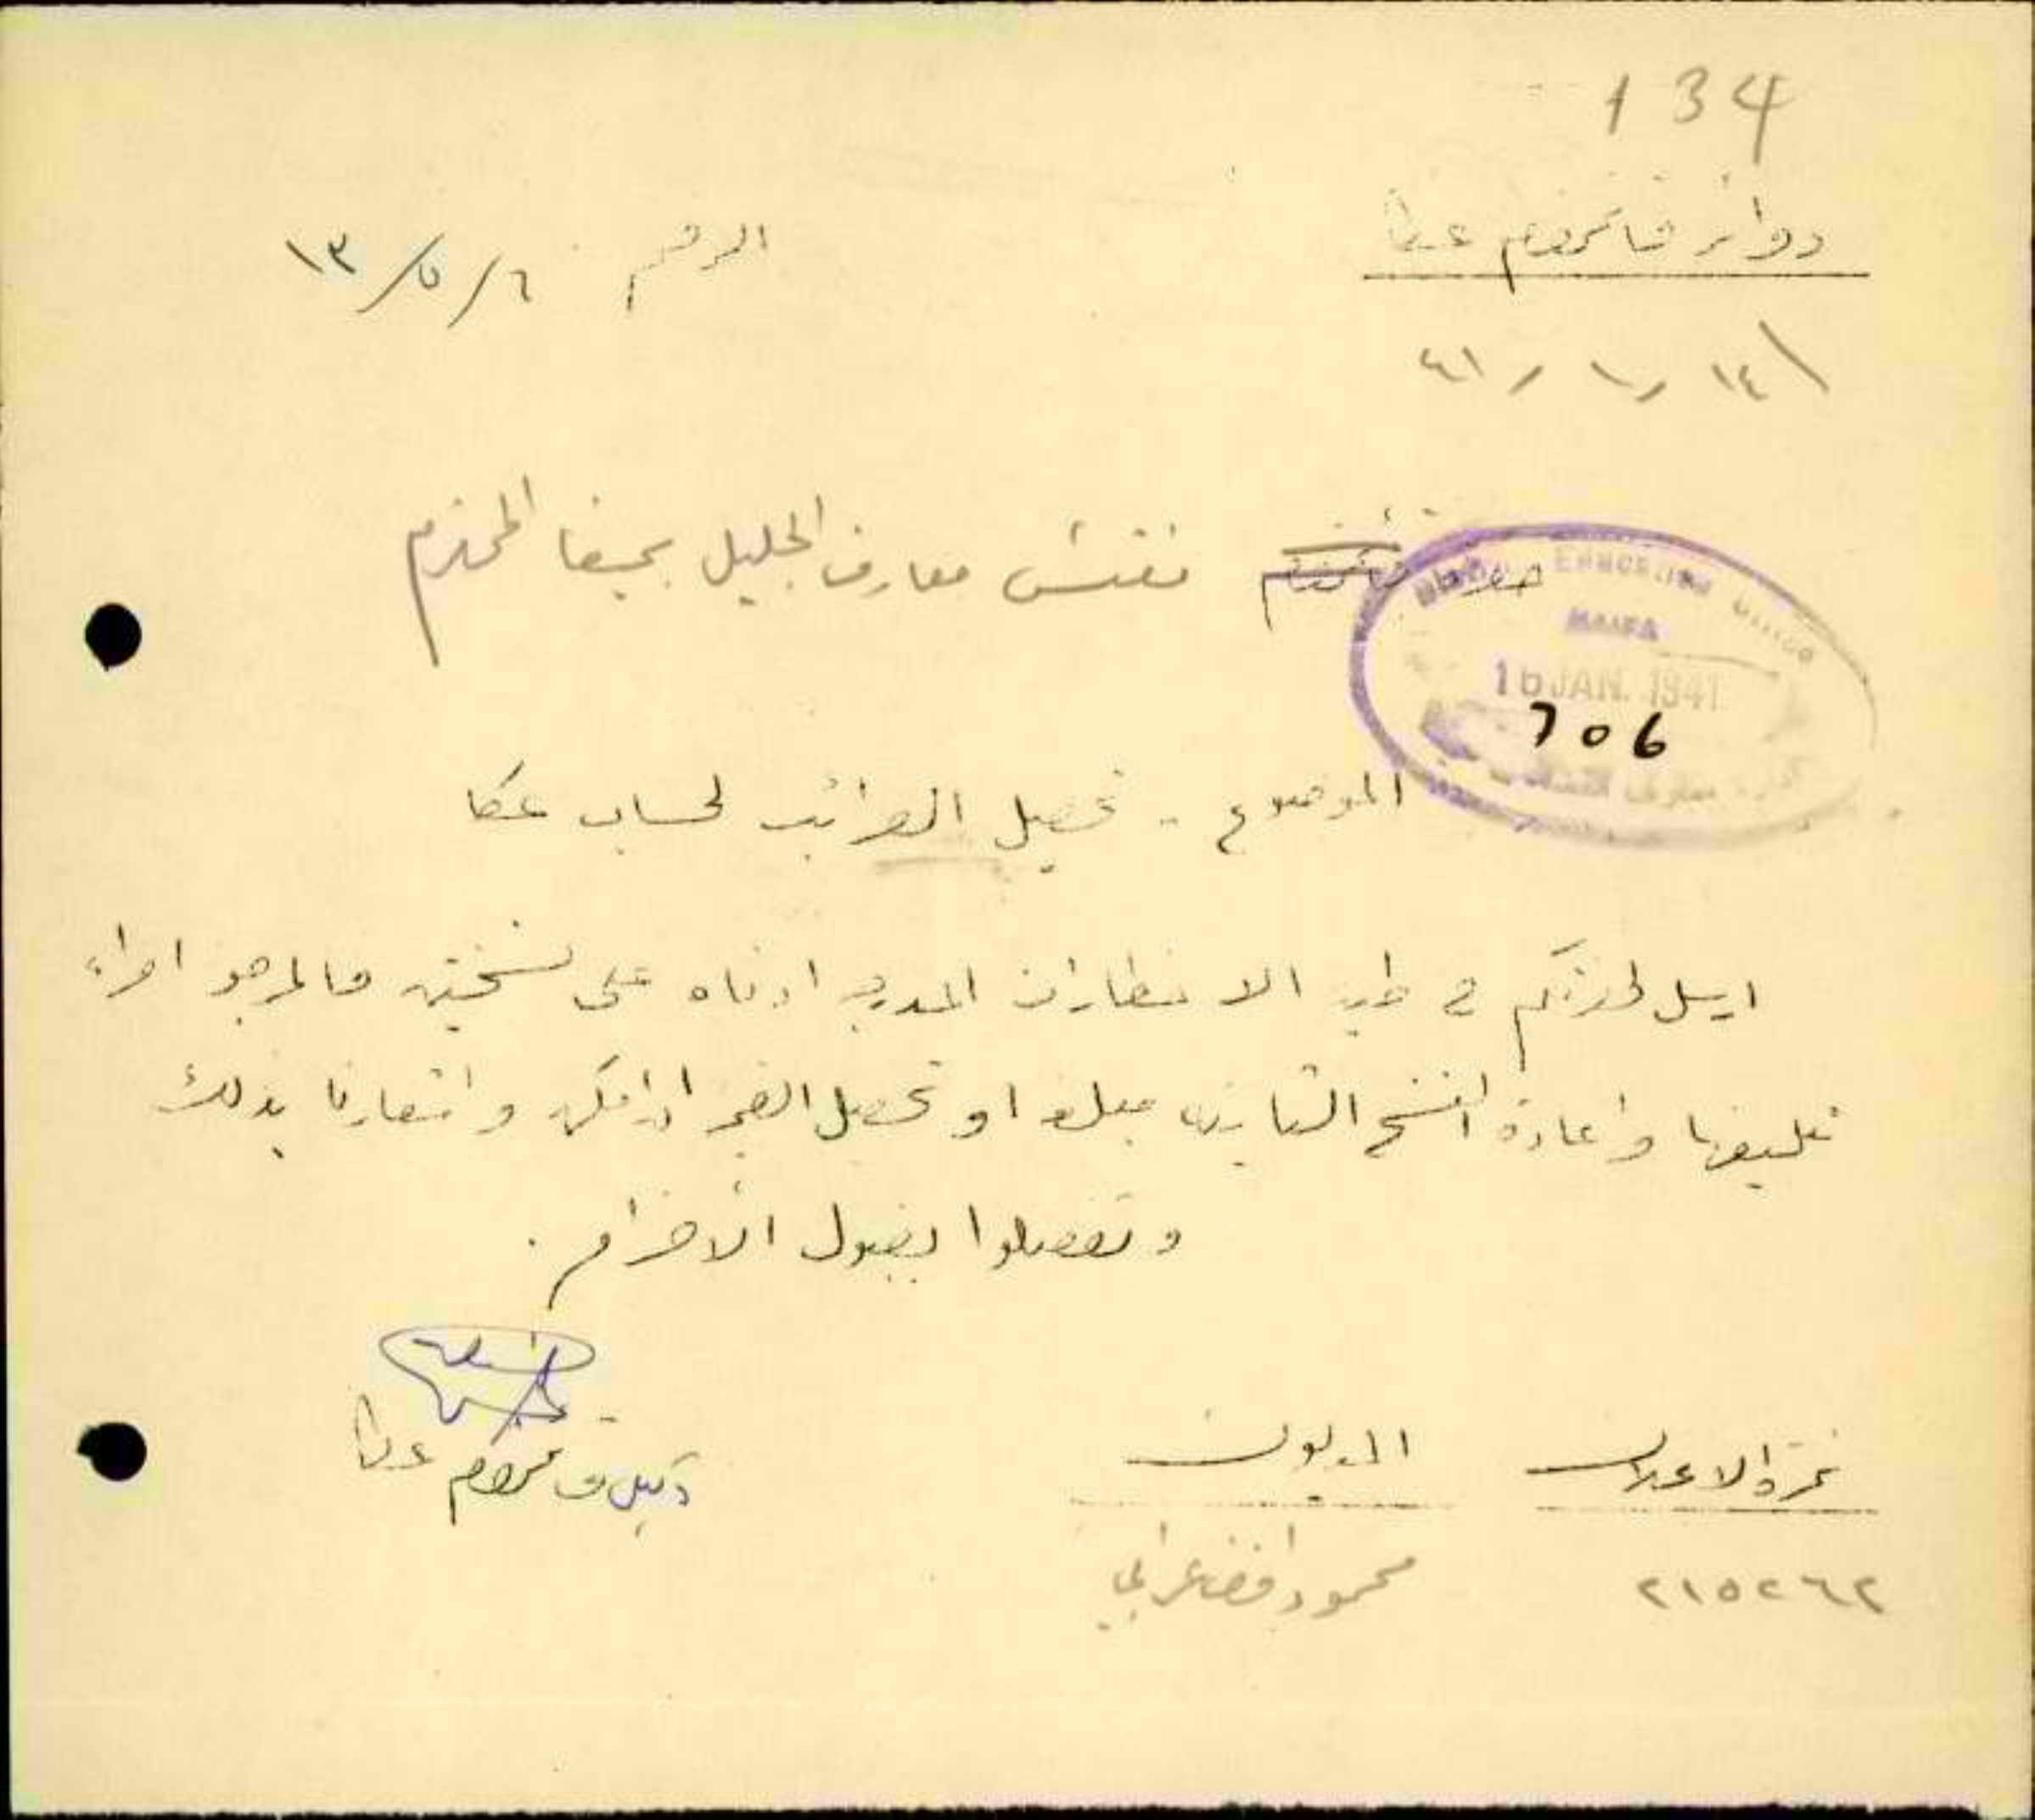 134
دوائر قائمقام عكا
الرقم ٦/٥/١٣
١٤/١/٤١
حضرة مفتش معارف الجليل بحيفا المحترم
EDUCATION OFFICE
HAIFA
16 JAN. 1941
706
الموضوع - تحصيل الضرائب لحساب عكا
ارسل لحضرتكم في طيه الاخطارات المدرجه ادناه على نسختين فالمرجو اجراء
تبليغها واعادة النسخ الثانيه مبلغه او تحصيل القيمه اذا امكن واشعارنا بذلك
وتفضلوا بقبول الاحترام .
وكيل قائمقام عكا
نمرة الاعلان المديون
٢١٥٢٦٢ محمود افندي عرابي